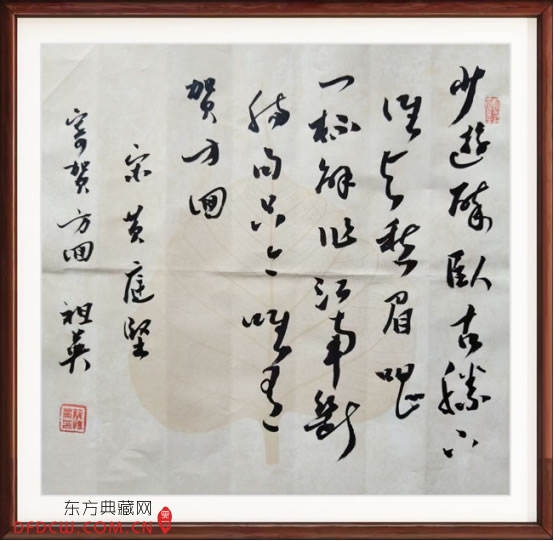 少遊醉臥古藤下
谁与愁眉唱
一杯解作江南断
肠句只今唯有
贺方回
宋黄庭坚
寄贺方回 祖英
东方典藏网
DFDCW.COM.CN